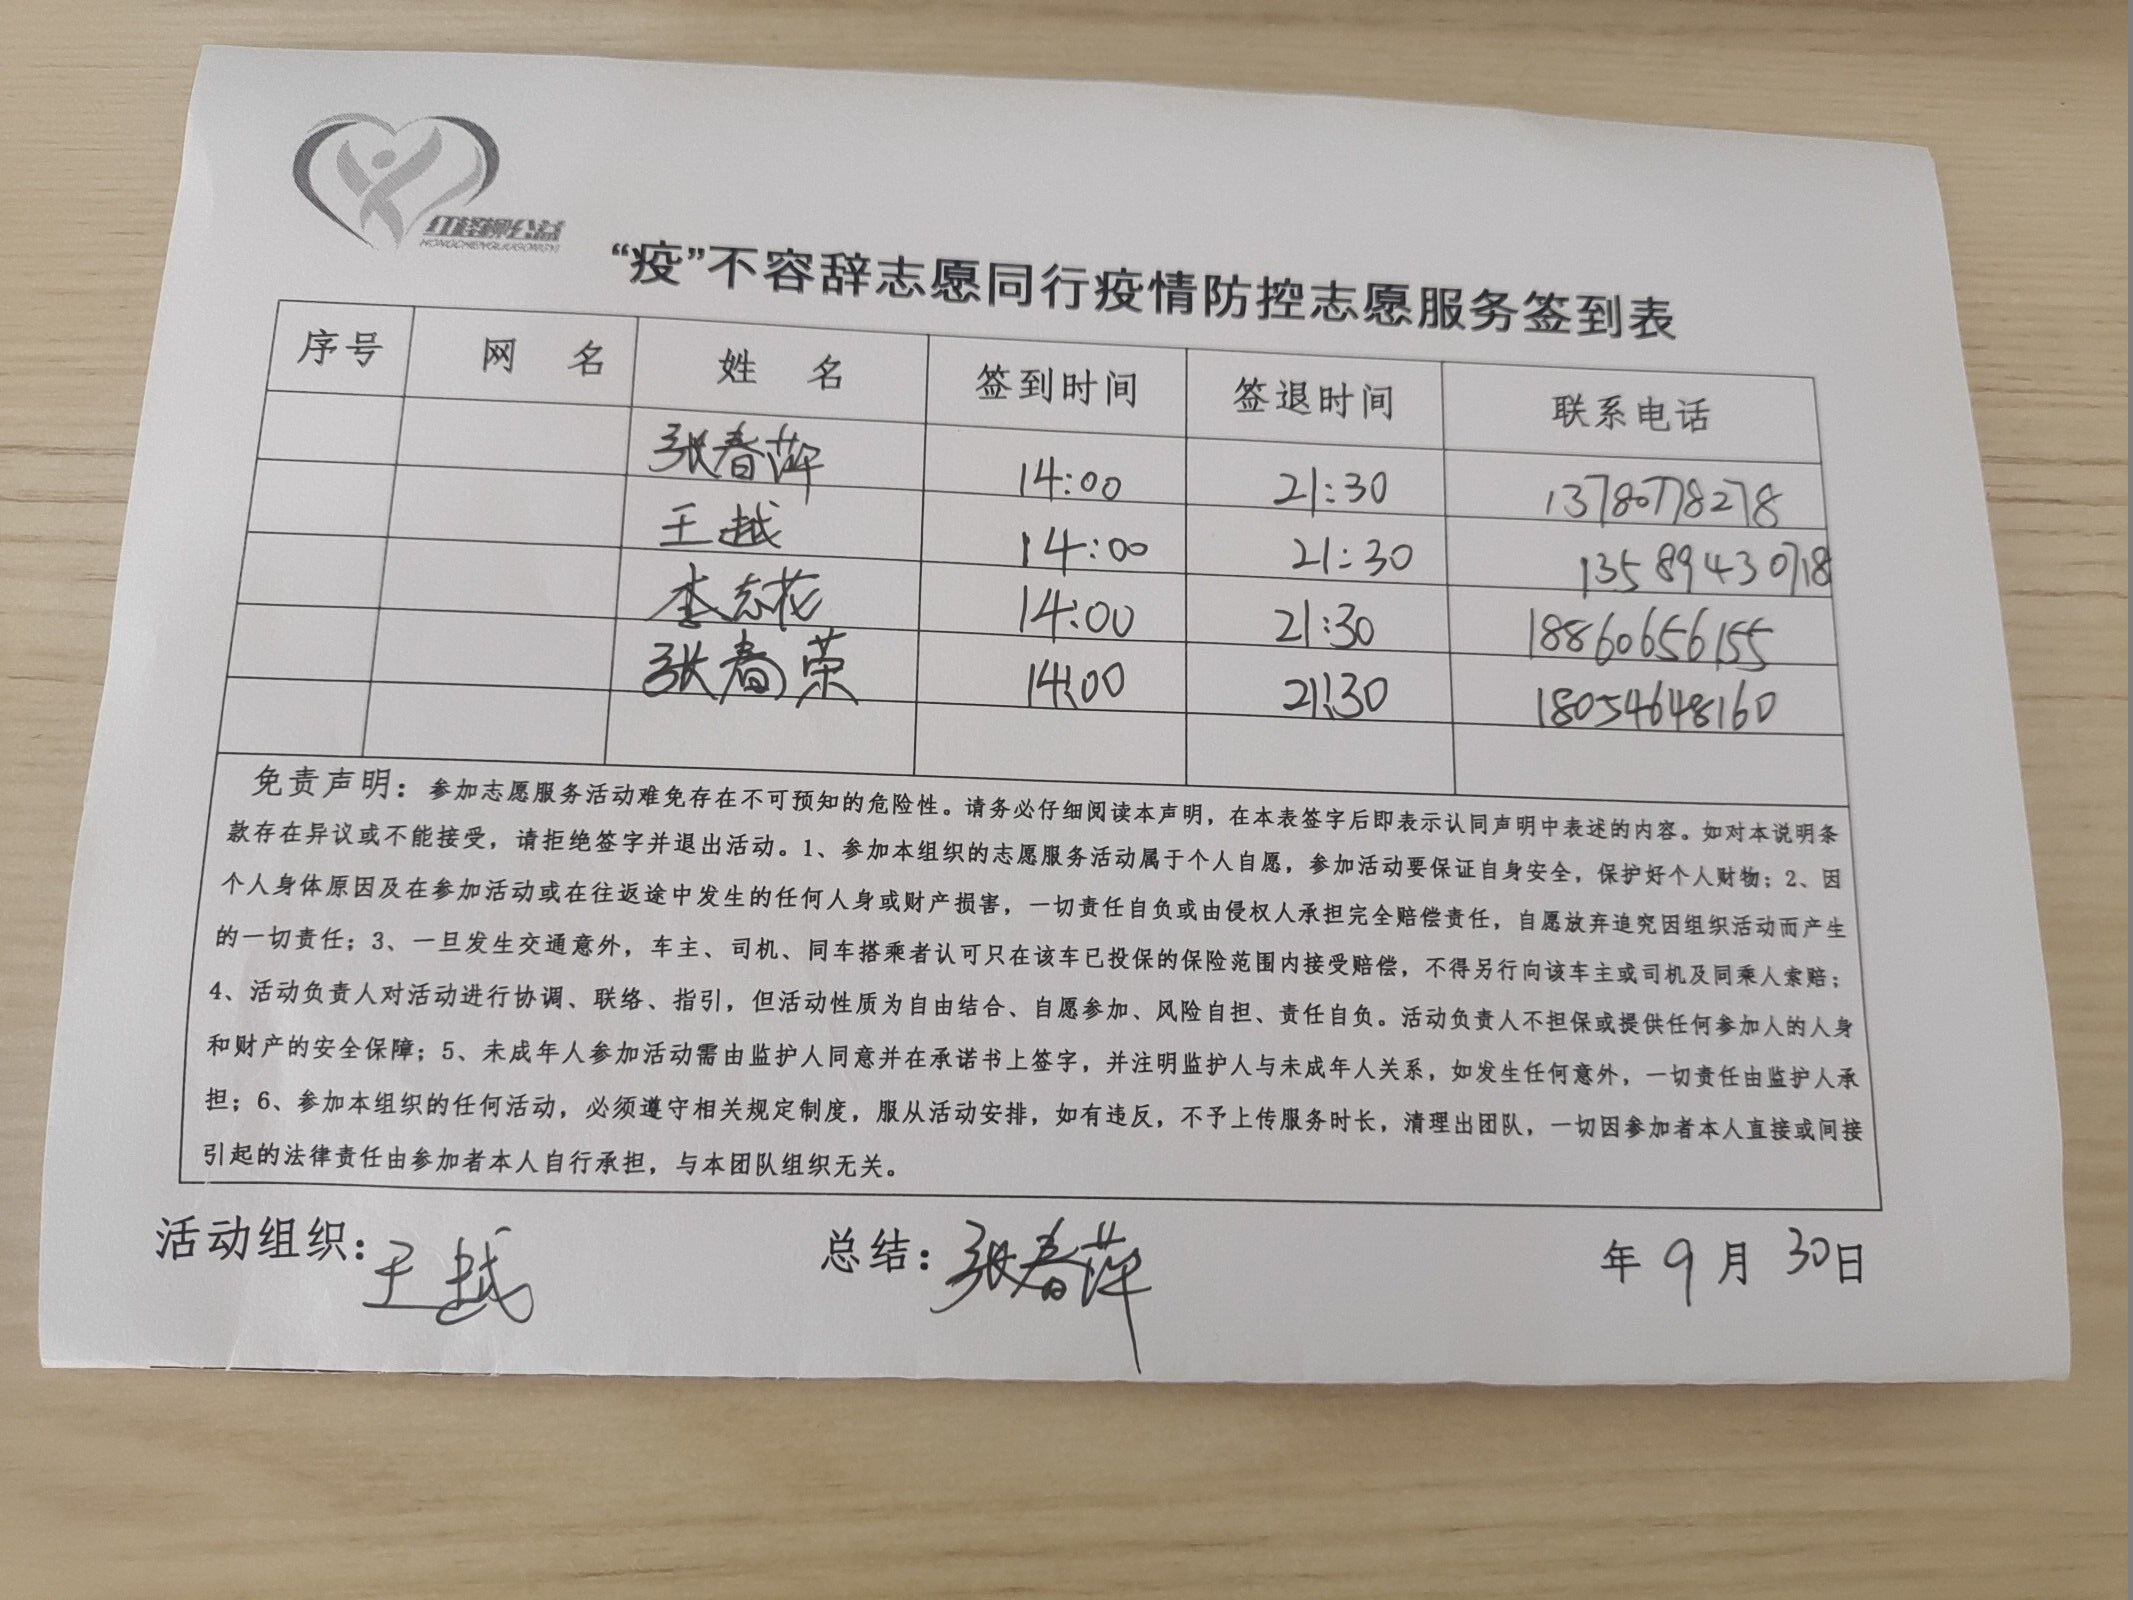 红柽柳公益
HONGCHENGLIUGONGYI
“疫”不容辞志愿同行疫情防控志愿服务签到表
序号 网 名 姓 名 签到时间 签退时间 联系电话
张春萍 14:00 21:30 13780778278
王越 14:00 21:30 13589430718
李志花 14:00 21:30 18860656155
张春荣 14:00 21:30 18054648160
免责声明：参加志愿服务活动难免存在不可预知的危险性。请务必仔细阅读本声明，在本表签字后即表示认同声明中表述的内容。如对本说明条
款存在异议或不能接受，请拒绝签字并退出活动。1、参加本组织的志愿服务活动属于个人自愿，参加活动要保证自身安全，保护好个人财物；2、因
个人身体原因及在参加活动或在往返途中发生的任何人身或财产损害，一切责任自负或由侵权人承担完全赔偿责任，自愿放弃追究因组织活动而产生
的一切责任；3、一旦发生交通意外，车主、司机、同车搭乘者认可只在该车已投保的保险范围内接受赔偿，不得另行向该车主或司机及同乘人索赔；
4、活动负责人对活动进行协调、联络、指引，但活动性质为自由结合、自愿参加、风险自担、责任自负。活动负责人不担保或提供任何参加人的人身
和财产的安全保障；5、未成年人参加活动需由监护人同意并在承诺书上签字，并注明监护人与未成年人关系，如发生任何意外，一切责任由监护人承
担；6、参加本组织的任何活动，必须遵守相关规定制度，服从活动安排，如有违反，不予上传服务时长，清理出团队，一切因参加者本人直接或间接
引起的法律责任由参加者本人自行承担，与本团队组织无关。
活动组织：王越 总结：张春萍 年 9 月 30日